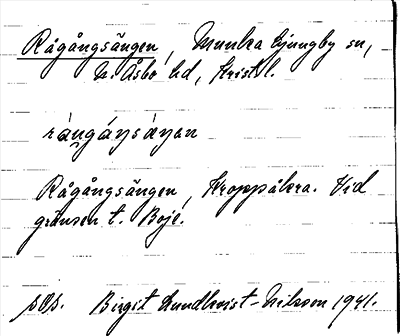 Rågångsängen, Munka Ljungby sn,
N. Åsbo hd, Krist l.
rángáŋsáŋan
Rågångsängen, Kroppåkra. Vid
gränsen t. Boje.
pOp. Birgit Lundkvist-Nilsson 1941.